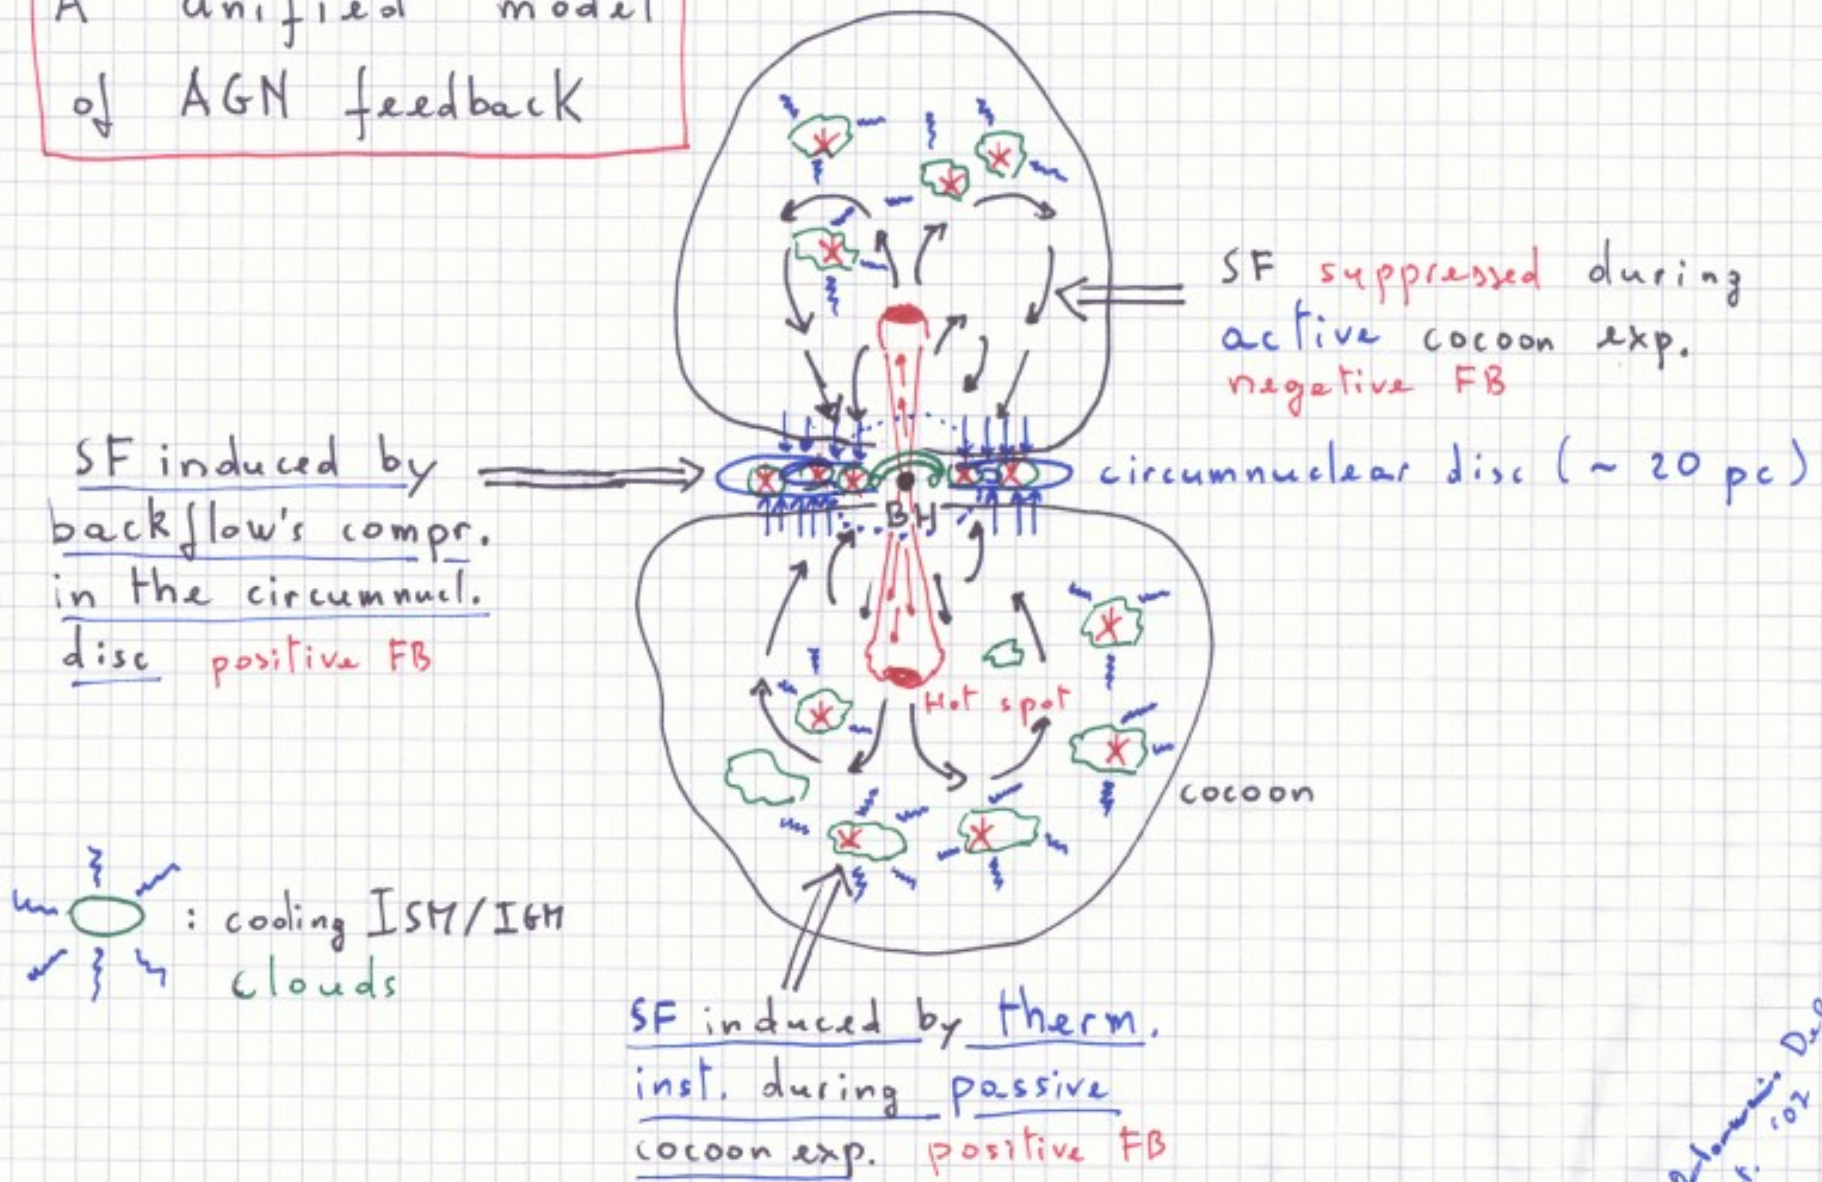 A unified model
of AGN feedback
SF suppressed during
active cocoon exp.
negetive FB
SF induced by
backflow's compr.
in the circumnucl.
disc positive FB
circumnuclear disc (~ 20 pc)
BH
Hot spot
cocoon
: cooling ISM/IGM
clouds
SF induced by therm.
inst. during passive
cocoon exp. positive FB